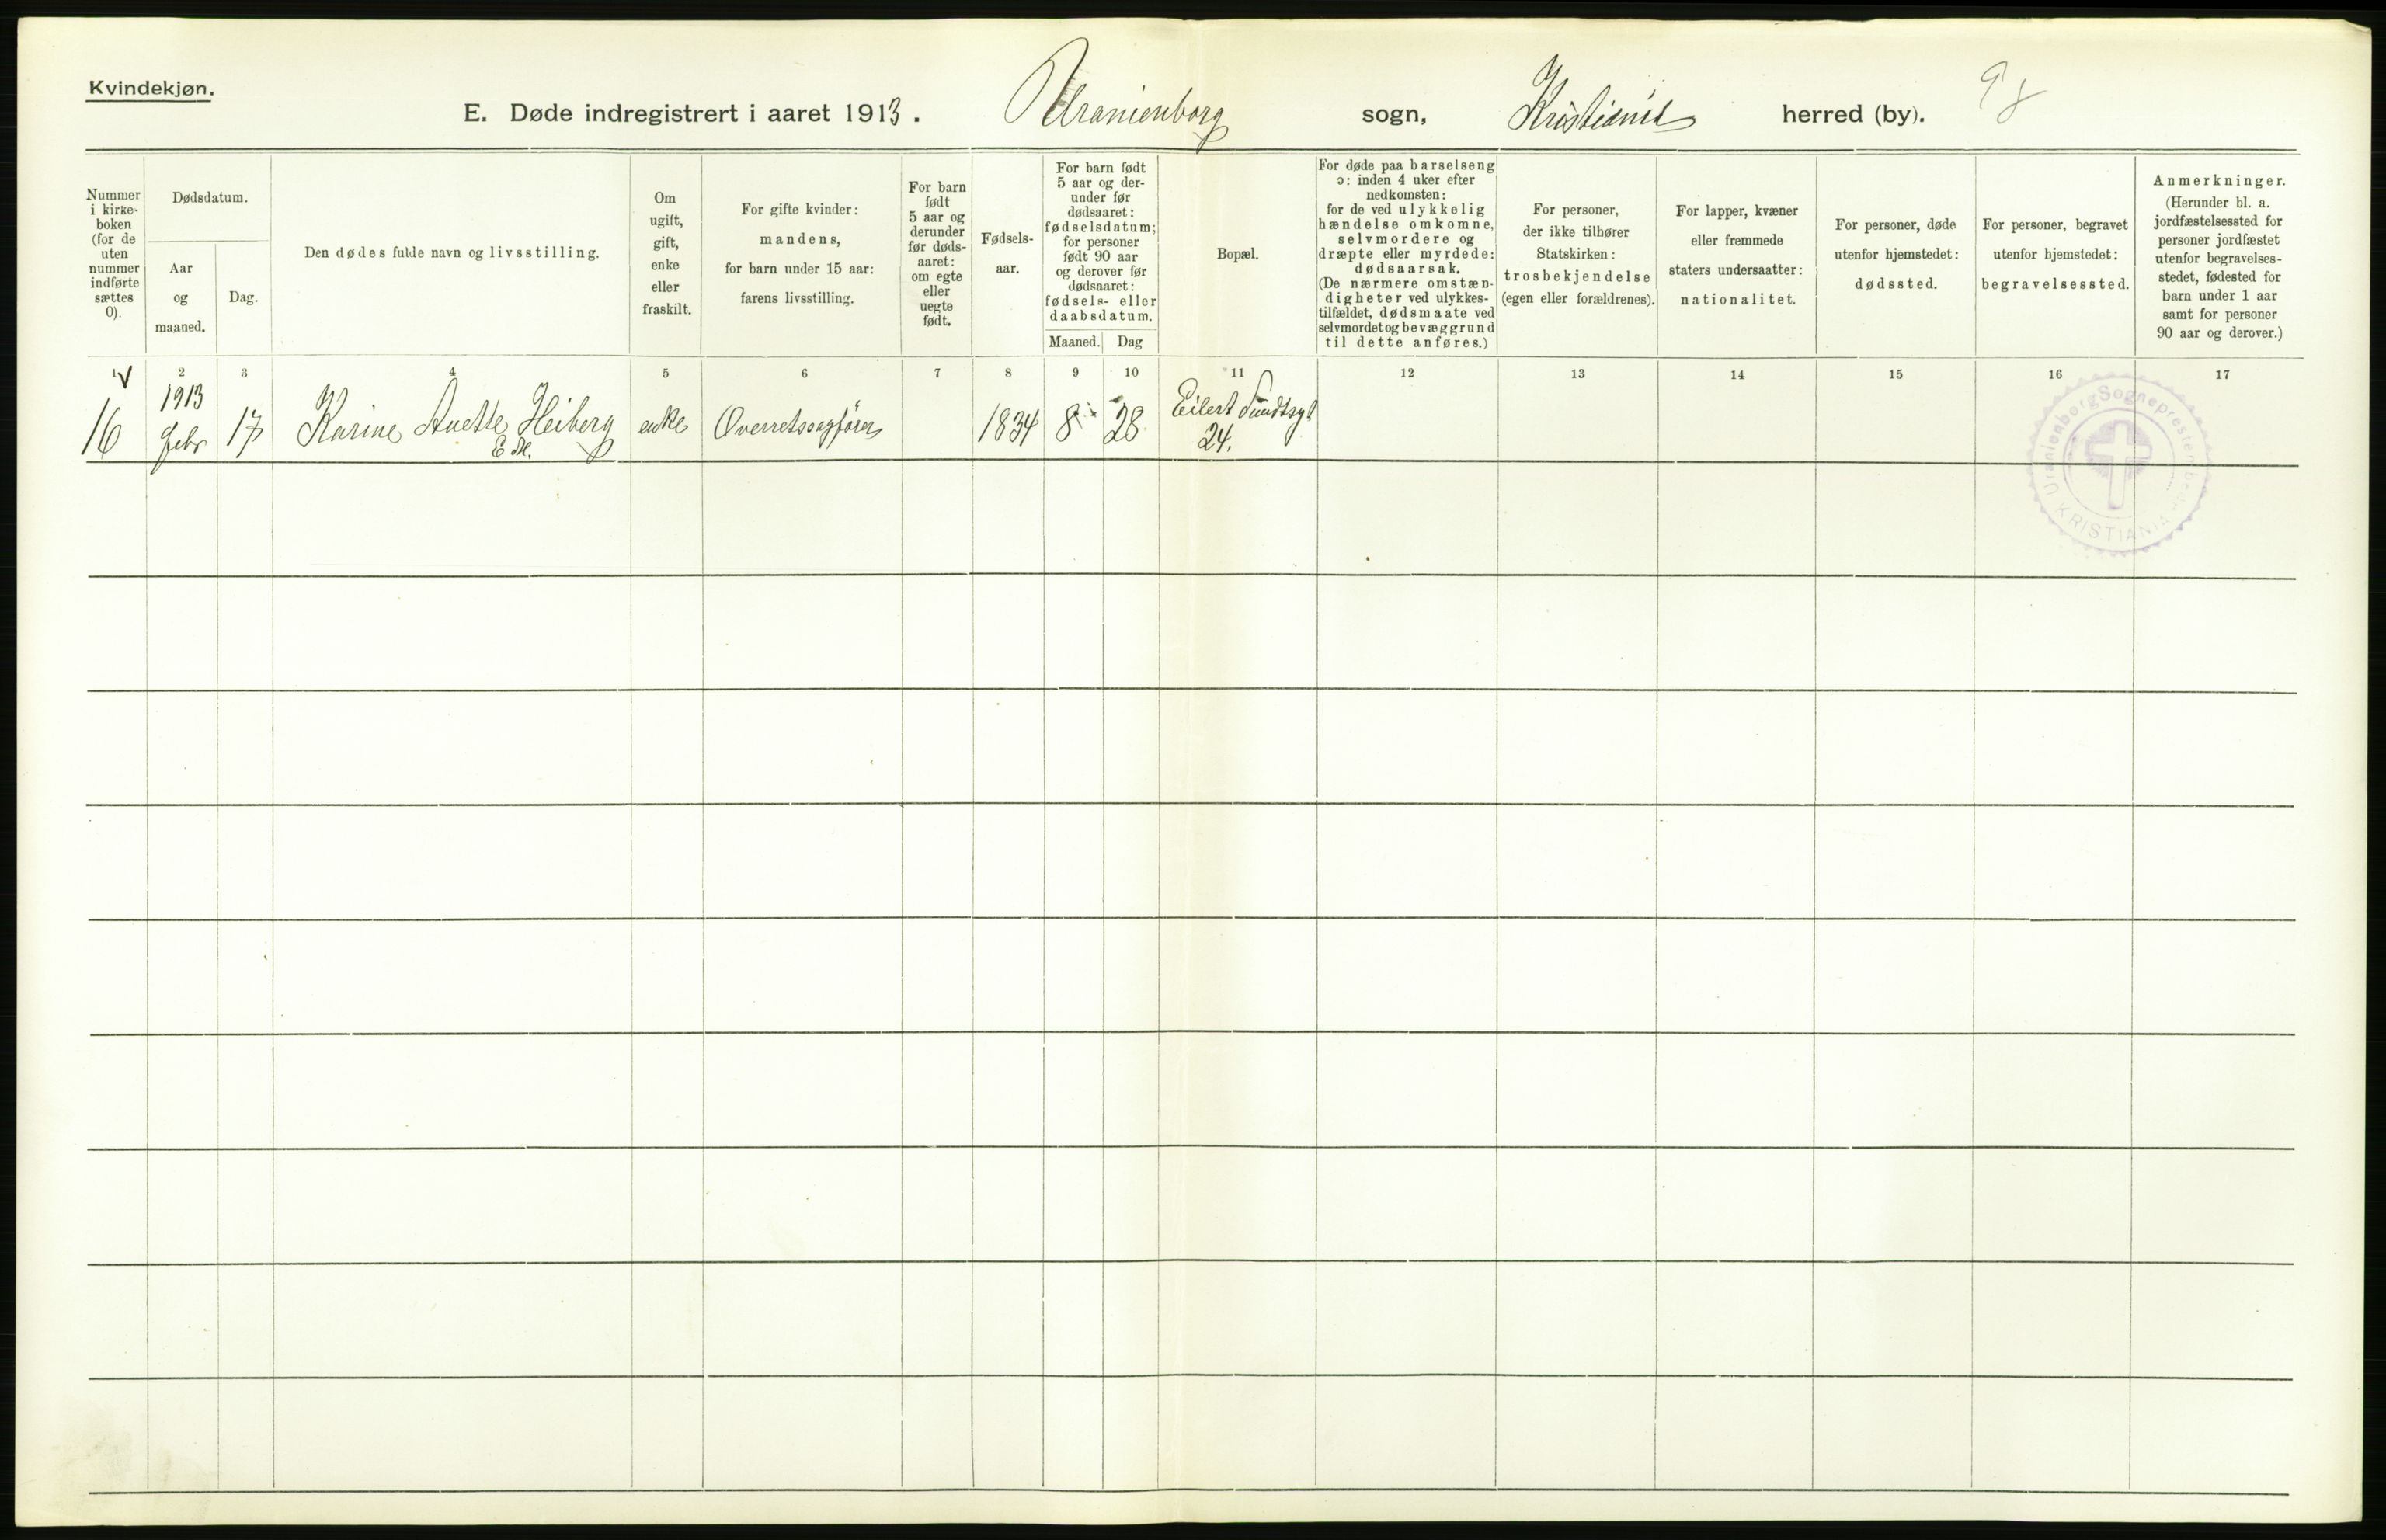 Kvindekjøn.
E. Døde indregistrert i aaret 1913. Uranienborg sogn, Kristiania herred (by).
Nummer
i kirke-
boken
(for de
uten
nummer
indførte
sættes
0).
Dødsdatum.
Aar
og
maaned.
Dag.
Den dødes fulde navn og livsstilling.
Om
ugift,
gift,
enke
eller
fraskilt.
For gifte kvinder:
mandens,
for barn under 15 aar:
farens livsstilling.
For barn
født
5 aar og
derunder
før døds-
aaret:
om egte
eller
uegte
født.
Fødsels-
aar.
For barn født
5 aar og der-
under før
dødsaaret:
fødselsdatum;
for personer
født 90 aar
og derover før
dødsaaret:
fødsels- eller
daabsdatum.
Maaned. Dag
Bopæl.
For døde paa barselseng
ɔ: inden 4 uker efter
nedkomsten:
for de ved ulykkelig
hændelse omkomne,
selvmordere og
dræpte eller myrdede:
dødsaarsak.
(De nærmere omstæn-
digheter ved ulykkes-
tilfældet, dødsmaate ved
selvmordet og bevæggrund
til dette anføres.)
For personer,
der ikke tilhører
Statskirken:
trosbekjendelse
(egen eller forældrenes).
For lapper, kvæner
eller fremmede
staters undersaatter:
nationalitet.
For personer, døde
utenfor hjemstedet:
dødssted.
For personer, begravet
utenfor hjemstedet:
begravelsessted.
Anmerkninger.
(Herunder bl. a.
jordfæstelsessted for
personer jordfæstet
utenfor begravelses-
stedet, fødested for
barn under 1 aar
samt for personer
90 aar og derover.)
1 2 3 4 5 6 7 8 9 10 11 12 13 14 15 16 17
1913
16 febr 17 Karine Anette Heiberg enke Overretssagfører 1834 8 28 Eilert Sundtsgt
24.
Uranienborg Sogneprestembede
KRISTIANIA